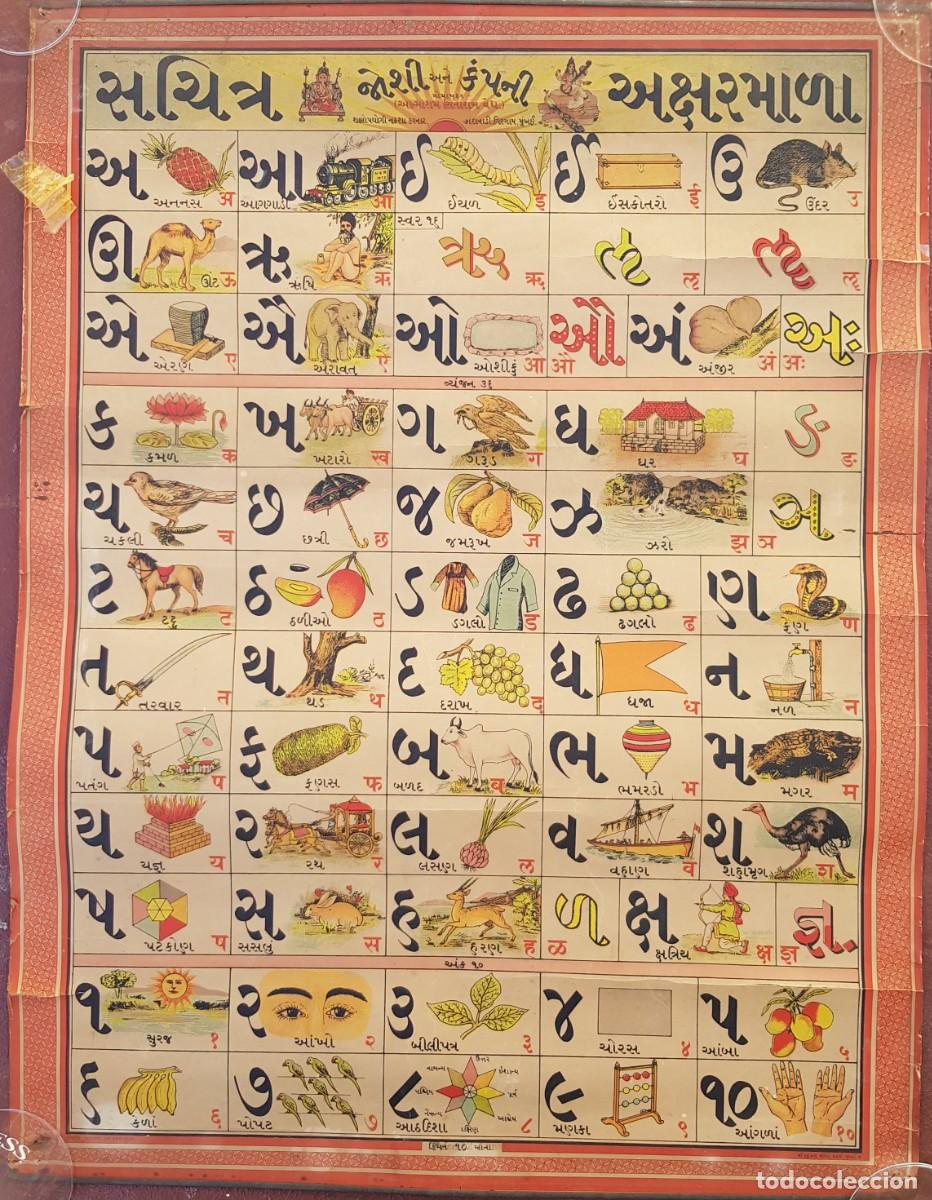 સચિત્ર જોશી અને કંપની અક્ષરમાળા
અ અનનસ अ
આ આગગાડી आ
ઇ ઇયળ इ
ઈ ઈસકોતરો ई
ઉ ઉંદર उ
ઊ ઊંટ ऊ
ઋ ઋષિ ऋ
સ્વર ૧૬
ૠ ॠ
ऌ
ॡ
એ એરણ ए
ઐ ઐરાવત ऐ
ઓ ઓશીકું ओ
ઔ औ
અં અંજીર अं
અઃ अः
વ્યંજન ૩૬
ક કમળ क
ખ ખટારો ख
ગ ગરૂડ ग
ઘ ઘર घ
ઙ ङ
ચ ચકલી च
છ છત્રી छ
જ જમરૂખ ज
ઝ ઝરો झ
ઞ ञ
ટ ટટ્ટુ ट
ઠ ઠળીઓ ठ
ડ ડગલો ड
ઢ ઢગલો ढ
ણ ફણ ण
ત તરવાર त
થ થડ थ
દ દરાખ द
ધ ધજા ध
ન નળ न
પ પતંગ प
ફ ફણસ फ
બ બળદ ब
ભ ભમરડો भ
મ મગર म
ય યજ્ઞ य
ર રથ र
લ લસણ ल
વ વહાણ व
શ શહામૃગ श
ષ ષટકોણ ष
સ સસલું स
હ હરણ ह
ળ ळ
ક્ષ ક્ષત્રિય क्ष
જ્ઞ ज्ञ
અંક ૧૦
૧ સુરજ १
૨ આંખો २
૩ બીલીપત્ર ३
૪ ચોરસ ४
૫ આંબા ५
૬ કેળાં ६
૭ પોપટ ७
૮ આઠદિશા ८
ઉત્તર
ઈશાન્ય
પૂર્વ
આગ્નેય
દક્ષિણ
નૈઋત્ય
પશ્ચિમ
વાયવ્ય
૯ મણકા ९
૧૦ આંગળાં १०
કિંમત ૧૦ આના
todocoleccion